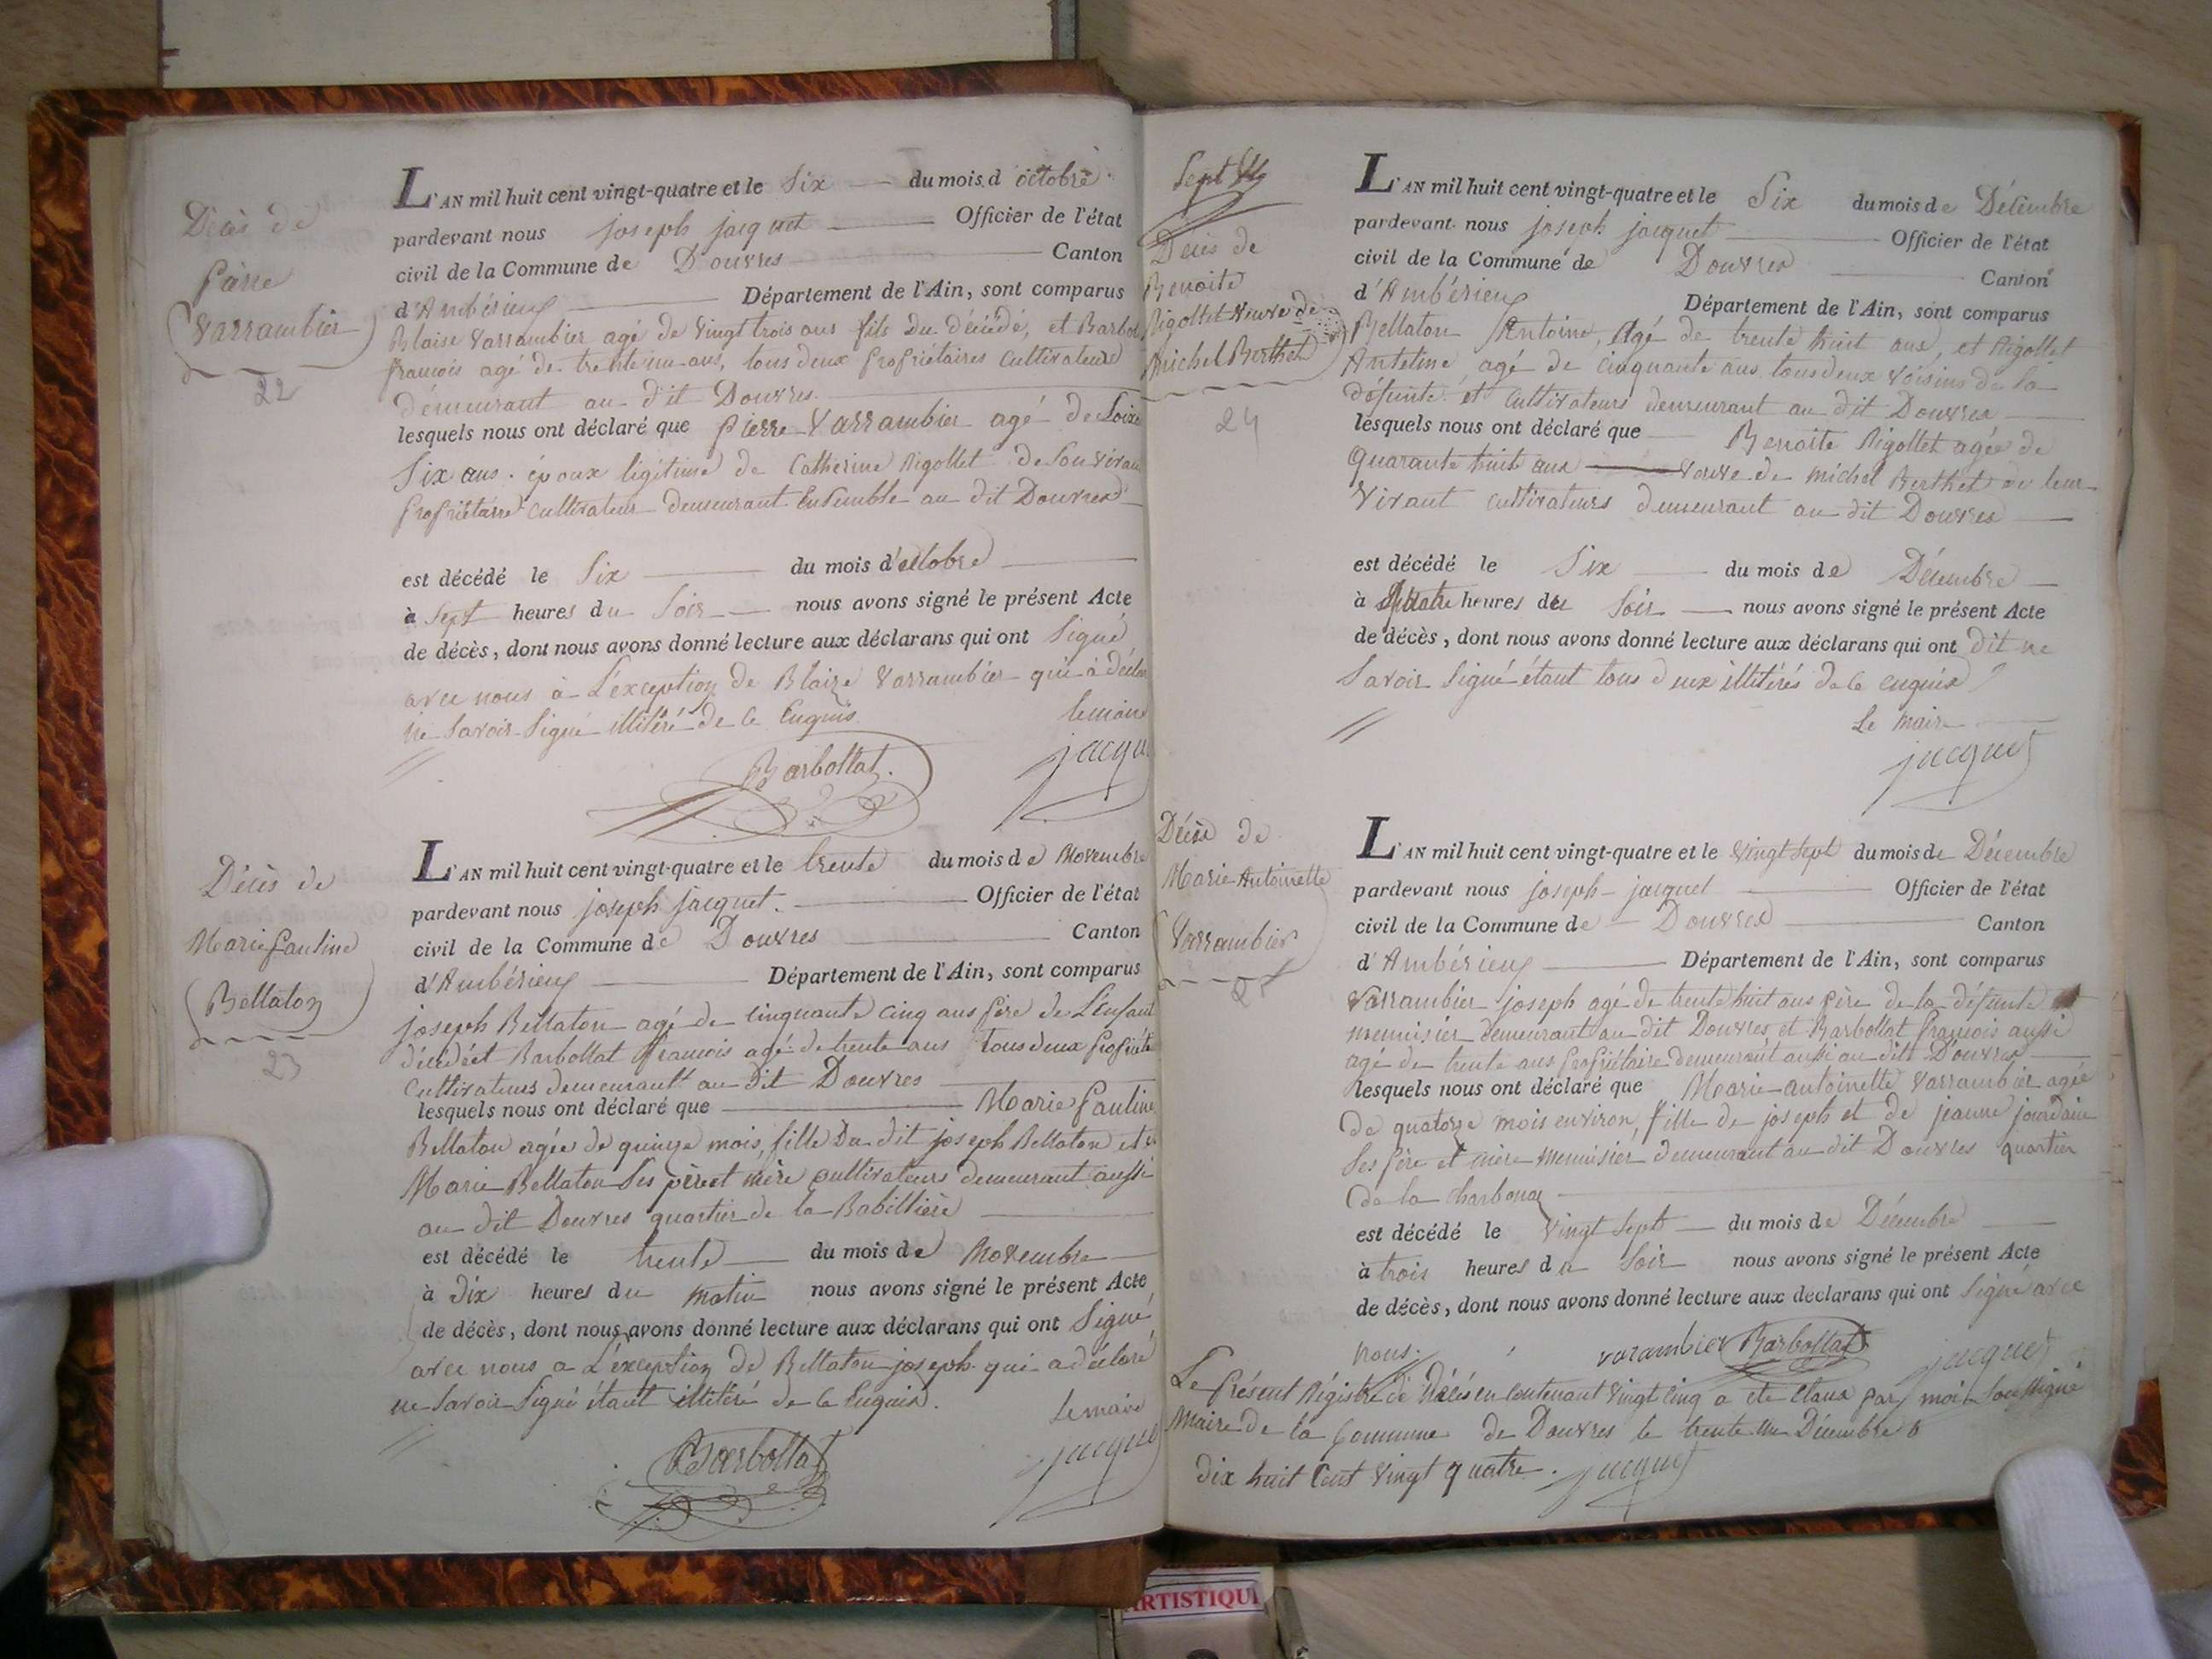 Décès de
Pierre
Varrambier
22
L'AN mil huit cent vingt-quatre et le Six du mois d'octobre
pardevant nous joseph jacquet Officier de l'état
civil de la Commune de Douvres Canton
d'Ambérieux Département de l'Ain, sont comparus
Blaise Varrambier agé de Vingt trois ans fils du décédé, et Barbol
francois agé de trente un ans, tous deux propriétaires Cultivateurs
demeurant au dit Douvres.
lesquels nous ont déclaré que pierre Varrambier agé de Soixe
Six ans. époux légitime de Catherine Rigollet de Son vivan
propriétaire Cultivateur demeurant Ensemble au dit Douvres
est décédé le Six du mois d'octobre
à Sept heures du Soir nous avons signé le présent Acte
de décès, dont nous avons donné lecture aux déclarans qui ont Signé
avec nous à L'exception de Blaize Varrambier qui à déclar
ne Savoir Signé illitéré de ce Enquis.
lemaire
Barbollat. jacqu
Décès de
Marie pauline
Bellaton
23
L'AN mil huit cent vingt-quatre et le trente du mois de Novembre
pardevant nous joseph jacquet. Officier de l'état
civil de la Commune de Douvres Canton
d'Ambérieux Département de l'Ain, sont comparus
joseph Bellaton agé de Cinquante Cinq ans père de L'enfant
décédé et Barbollat francois agé de trente ans tous deux propriét
Cultivateurs demeurant au dit Douvres
lesquels nous ont déclaré que Marie pauline
Bellaton agée de quinze mois, fille Du dit joseph Bellaton et
Marie Bellaton Ses père et mère cultivateurs demeurant aussi
au dit Douvres quartier de la Babillière
est décédé le trente du mois de Novembre
à Dix heures du matin nous avons signé le présent Acte
de décès, dont nous avons donné lecture aux déclarans qui ont Signé
avec nous a L'exception de Bellaton joseph qui a déclaré
ne Savoir Signé étant illitéré de ce Enquis.
Lemaire
Barbollat jacque
Sept
Décès de
Benoite
Rigollet Veuve de
Michel Berthet
24
L'AN mil huit cent vingt-quatre et le Six du mois de Décembre
pardevant nous joseph jacquet Officier de l'état
civil de la Commune de Douvres Canton
d'Ambérieux Département de l'Ain, sont comparus
Bellaton Antoine, Agé de trente huit ans, et Rigollet
Antelme agé de Cinquante ans tous deux Voisins de la
défunte et Cultivateurs demeurant au dit Douvres
lesquels nous ont déclaré que Benoite Rigollet agée de
Quarante huit ans Veuve de michel Berthet de leur
Vivant cultivateurs demeurant au dit Douvres
est décédé le Six du mois de Décembre
à Quatre heures du Soir nous avons signé le présent Acte
de décès, dont nous avons donné lecture aux déclarans qui ont dit ne
Savoir Signé étant tous deux illitérés de ce enquis
Le Maire
jacquet
Décès de
Marie Antoinette
Varrambier
25
L'AN mil huit cent vingt-quatre et le Vingt Sept du mois de Décembre
pardevant nous joseph jacquet Officier de l'état
civil de la Commune de Douvres Canton
d'Ambérieux Département de l'Ain, sont comparus
Varrambier joseph agé de trente huit ans père de la défunte
menuisier demeurant au dit Douvres et Barbollat francois aussi
agé de trente ans propriétaire demeurant aussi au dit Douvres
lesquels nous ont déclaré que Marie antoinette Varrambier agée
de quatorze mois environ, fille de joseph et de jeanne jourdain
Ses père et mère menuisier demeurant au dit Douvres quartier
de la Charbonaz
est décédé le Vingt Sept du mois de Décembre
à trois heures du Soir nous avons signé le présent Acte
de décès, dont nous avons donné lecture aux déclarans qui ont Signé avec
nous. varambier Barbollat jacquet
Le présent Régistre de Décès en Contenant Vingt Cinq a été Claux par moi Soussigné
Maire de la Commune de Douvres le trente un Décembre
Dix huit Cent Vingt quatre. jacquet
ARTISTIQU